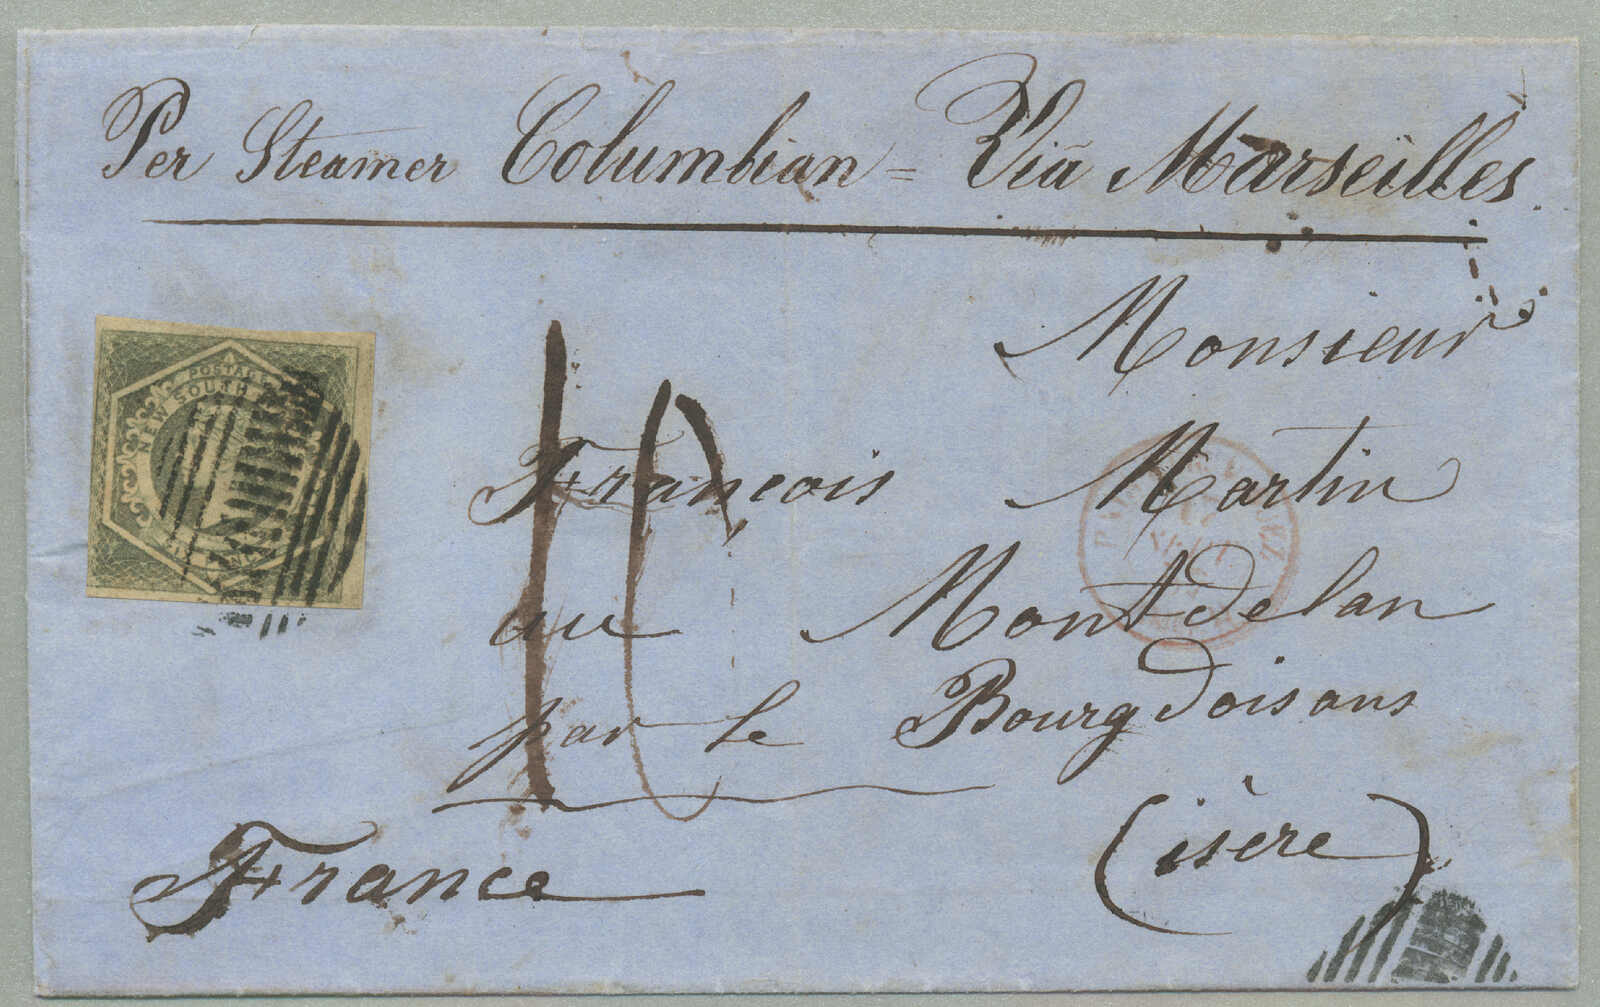 Per Steamer Columbian = Viâ Marseïlles.
POSTAGE
NEW SOUTH
10
Monsieur
François Martin
au Mont de lan
par le Bourg doisans
(isère)
France